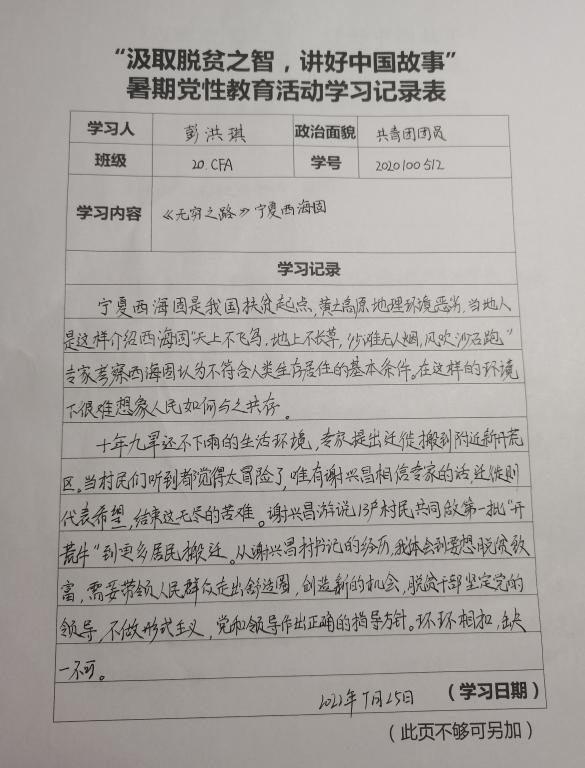 “汲取脱贫之智，讲好中国故事”
暑期党性教育活动学习记录表
学习人 彭洪琪 政治面貌 共青团团员
班级 20.CFA 学号 2020100512
学习内容 《无穷之路》宁夏西海固
学习记录
宁夏西海固是我国扶贫起点，黄土高原地理环境恶劣，当地人
是这样介绍西海固“天上不飞鸟，地上不长草，沙滩无人烟，风吹沙石跑”
专家考察西海固认为不符合人类生存居住的基本条件。在这样的环境
下很难想象人民如何与之共存。
十年九旱还不下雨的生活环境，专家提出迁徙搬到附近新开荒
区。当村民们听到都觉得太冒险了，唯有谢兴昌相信专家的话，迁徙则
代表希望，结束这无尽的苦难。谢兴昌游说13户村民共同做第一批“开
荒牛”到更多居民搬迁。从谢兴昌村书记的经历，我体会到要想脱贫致
富，需要带领人民群众走出舒适圈，创造新的机会，脱贫干部坚定党的
领导，不做形式主义，党和领导作出正确的指导方针。环环相扣，缺
一不可。
2022年7月25日 （学习日期）
（此页不够可另加）